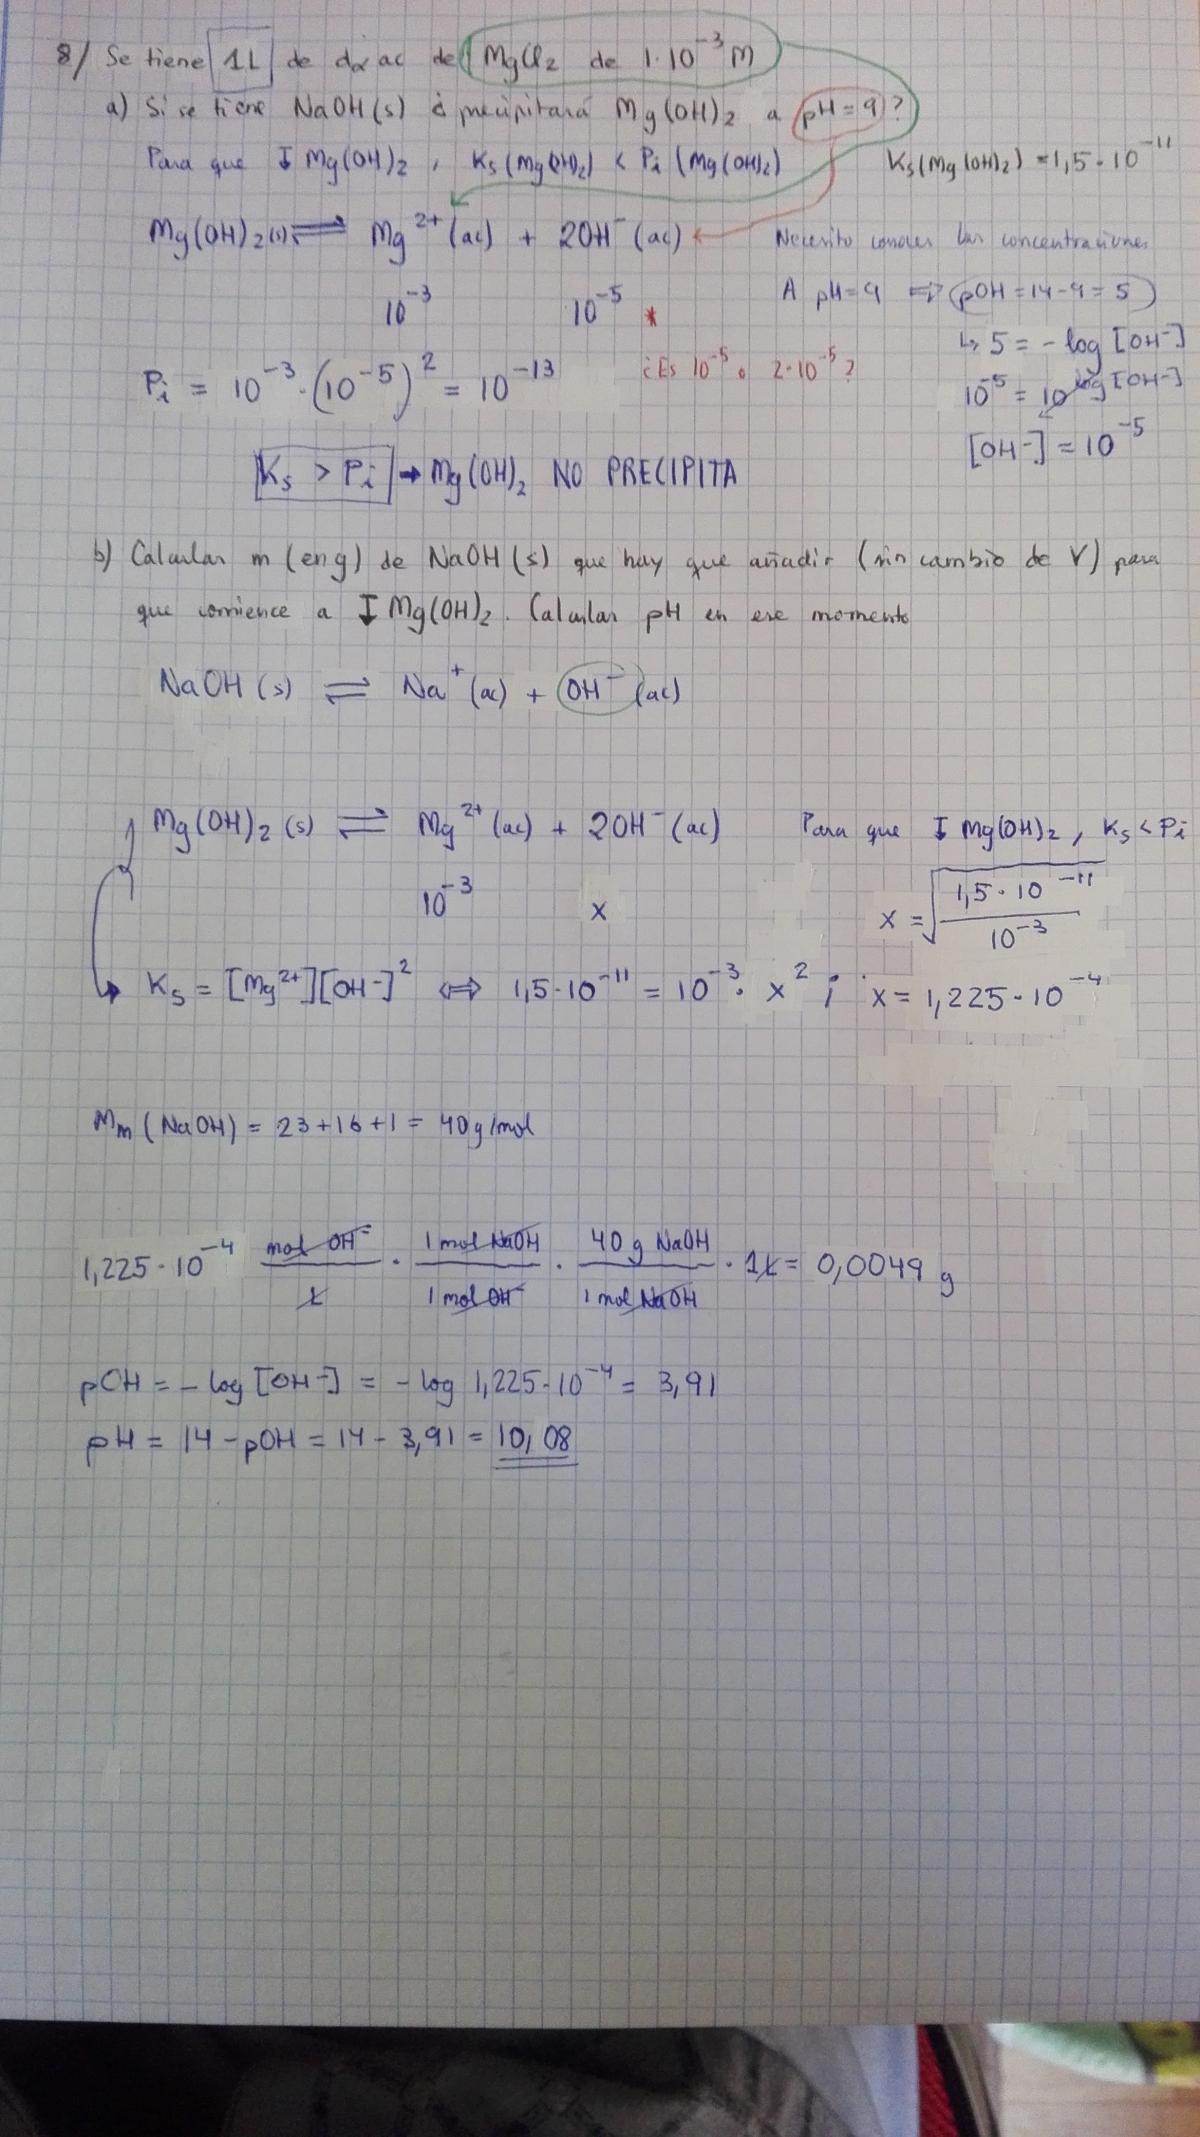 8/ Se tiene 1L de dα ac de MgCl₂ de 1·10⁻³ M
a) Si se tiene NaOH(s) ¿ precipitará Mg(OH)₂ a pH=9?
Para que ↓ Mg(OH)₂, Ks(Mg(OH)₂) < Pi (Mg(OH)₂)
Ks(Mg(OH)₂) = 1,5·10⁻¹¹
Mg(OH)₂(s) ⇌ Mg²⁺(ac) + 2OH⁻(ac)
Necesito conocer las concentraciones
10⁻³ 10⁻⁵ *
A pH=9 ⇒ pOH=14-9=5
↳ 5 = -log [OH⁻]
¿Es 10⁻⁵ o 2·10⁻⁵?
Pi = 10⁻³·(10⁻⁵)² = 10⁻¹³
10⁻⁵ = 10^log[OH⁻]
[OH⁻] = 10⁻⁵
Ks > Pi → Mg(OH)₂ NO PRECIPITA
b) Calcular m (en g) de NaOH(s) que hay que añadir (sin cambio de V) para
que comience a ↓ Mg(OH)₂. Calcular pH en ese momento
NaOH(s) ⇌ Na⁺(ac) + OH⁻(ac)
Mg(OH)₂(s) ⇌ Mg²⁺(ac) + 2OH⁻(ac) Para que ↓ Mg(OH)₂, Ks < Pi
10⁻³ x
x = √(1,5·10⁻¹¹ / 10⁻³)
Ks = [Mg²⁺][OH⁻]² ⇔ 1,5·10⁻¹¹ = 10⁻³· x² ; x = 1,225·10⁻⁴
Mm (NaOH) = 23+16+1 = 40g/mol
1,225·10⁻⁴ mol OH⁻/L · 1 mol NaOH/1 mol OH⁻ · 40 g NaOH/1 mol NaOH · 1L = 0,0049 g
pOH = -log [OH⁻] = -log 1,225·10⁻⁴ = 3,91
pH = 14 - pOH = 14 - 3,91 = 10,08